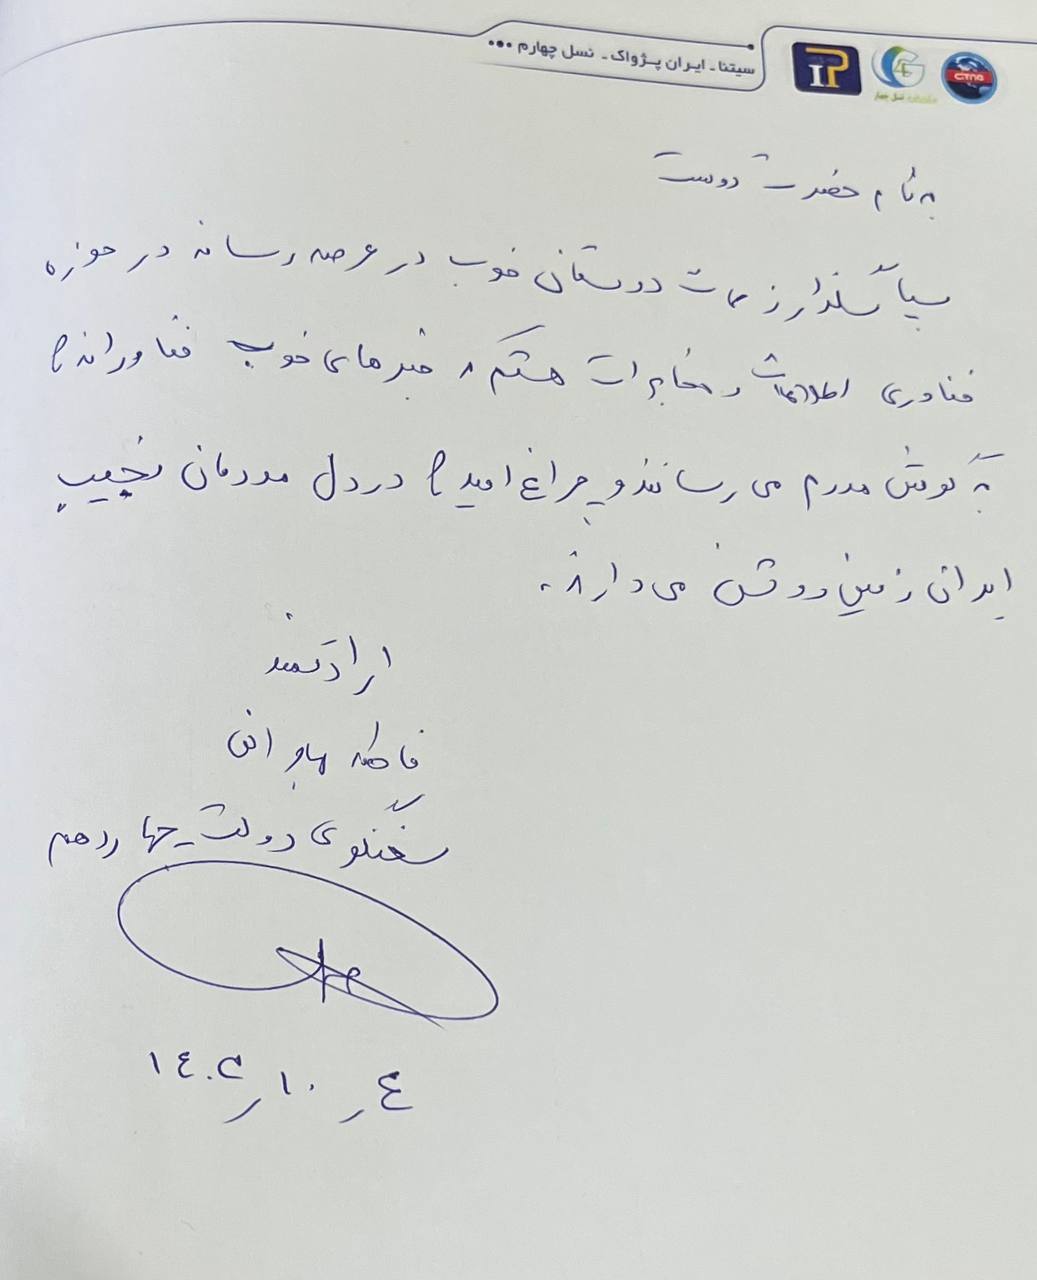 سیتنا - ایران پژواک - نسل چهارم •••
CITNA
IP
به نام حضرت دوست
سپاسگذار زحمات دوستان خوب در عرصه رسانه در حوزه
فناوری اطلاعات و مخابرات هستم که خبرهای خوب فناورانه را
به گوش مردم می رسانند و چراغ امید را در دل مردمان نجیب
ایران زمین روشن می دارند.
ارادتمند
فاطمه مهاجرانی
سخنگوی دولت چهاردهم
٤ر١٠ر١٤٠٤